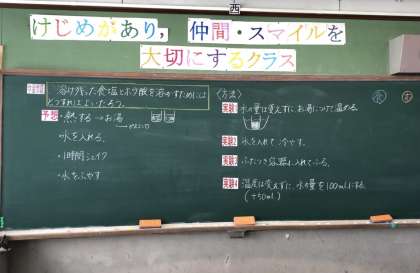 西
けじめがあり，仲間・スマイルを
大切にするクラス
溶け残った食塩とホウ酸を溶かすためには
どうすればよいだろう。
予想
・熱する→お湯
・氷を入れる。
・1時間シェイク
・水をふやす
〈方法〉
実験1 水の量は変えずにお湯につけて温める。
実験2 氷を入れて冷やす。
実験3 ふたつき容器に入れてふる。
実験4 温度は変えずに、水の量を100mLにする。
(+50mL)